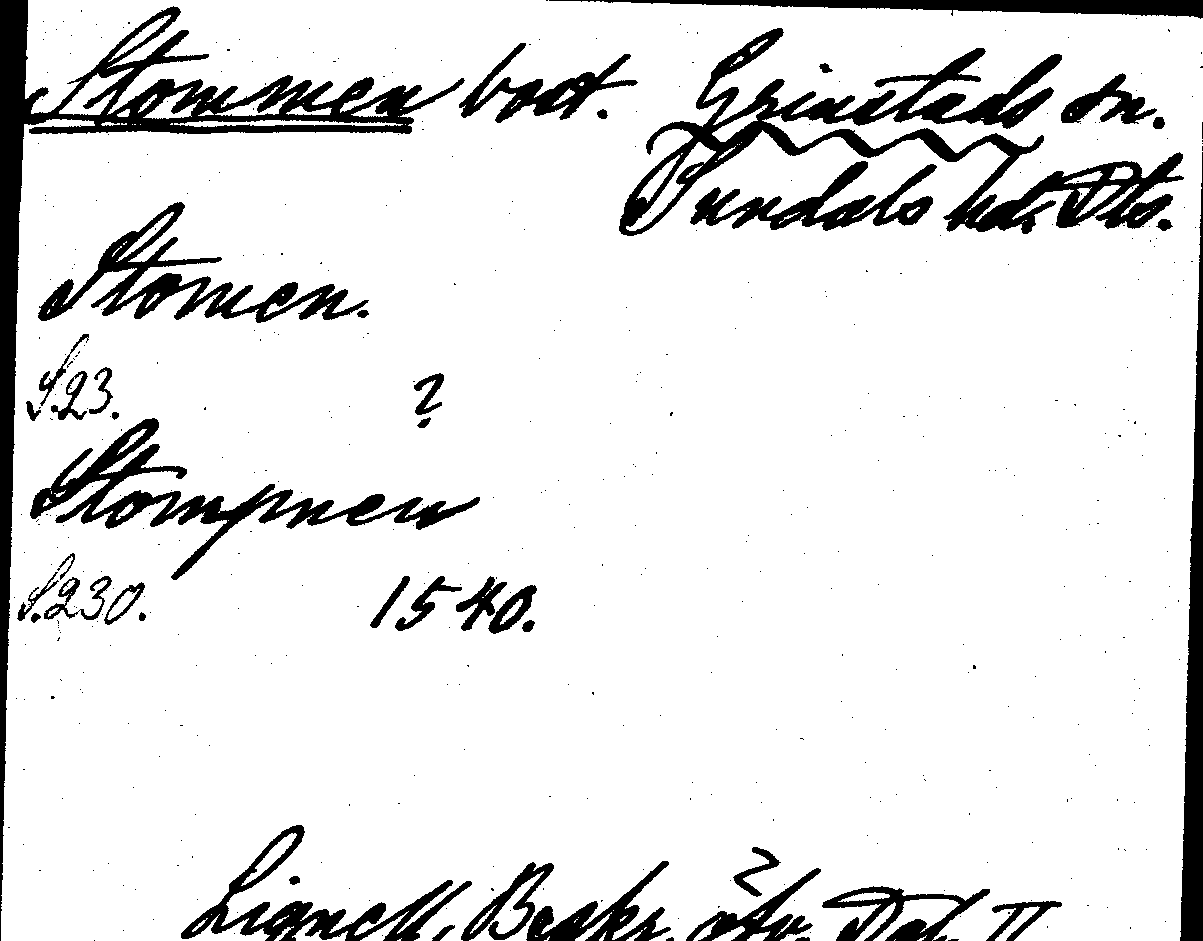 Stommen bost. Grinstads sn.
Sundals hd, Dls.
Stomen.
S.23. ?
Stompnen
S.230. 1540.
Lignell, Beskr. öfv. Dal. II